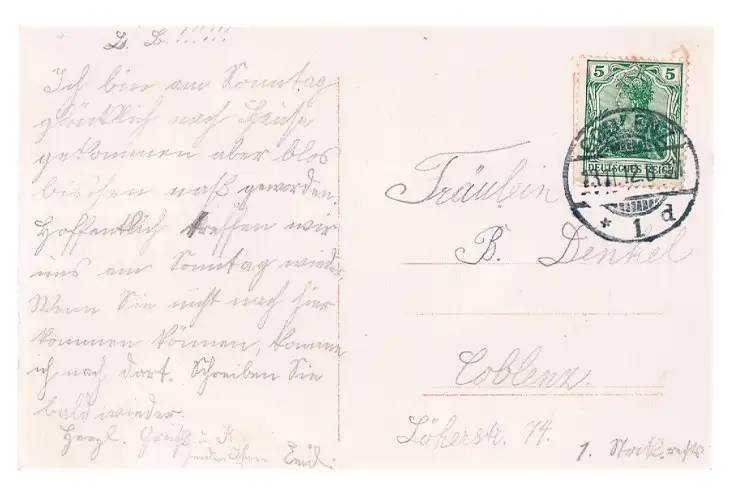 L. B.!!!!!!
Ich bin am Sonntag
glücklich nach Hause
gekommen aber blos
bischen naß geworden.
Hoffentlich treffen wir
uns am Sonntag wieder.
Wenn Sie nicht nach hier
kommen können, komme
ich nach dort. Schreiben Sie
bald wieder.
Herzl. Grüße u. K
5 5
DEUTSCHES REICH
COBLENZ
* 1 d
Fräulein
B. Denkel
Coblenz.
Löherstr. 74.
1. Stock rechts